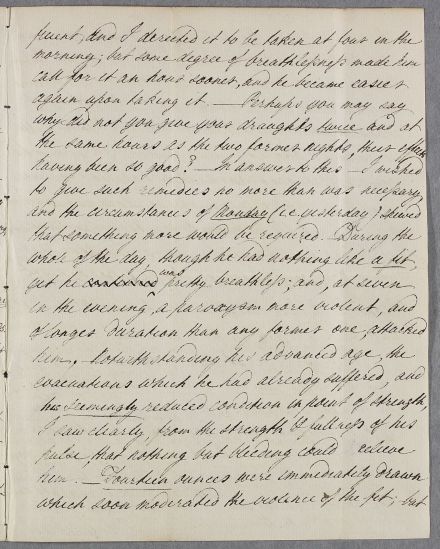 fluent, and I directed it to be taken at four in the
morning; but some degree of breathlessness made him
call for it an hour sooner, and he became easier
again upon taking it. — Perhaps you may say
why did not you give your draughts twice and at
the same hours as the two former nights, their effects
having been so good? — In answer to this — I wished
to give such remedies no more than was necessary,
and the circumstances of Monday (i.e. yesterday) shewed
that something more would be required. During the
whole of the day, though he had nothing like a fit,
yet he was pretty breathless; and, at seven
in the evening, a paroxysm more violent, and
of longer duration than any former one, attacked
him. Notwithstanding his advanced age, the
evacuations which he had already suffered, and
his seemingly reduced condition in point of strength,
I saw clearly, from the strength & fullness of his
pulse, that nothing but bleeding could relieve
him. Fourteen ounces were immediately drawn
which soon moderated the violence of the fit; but